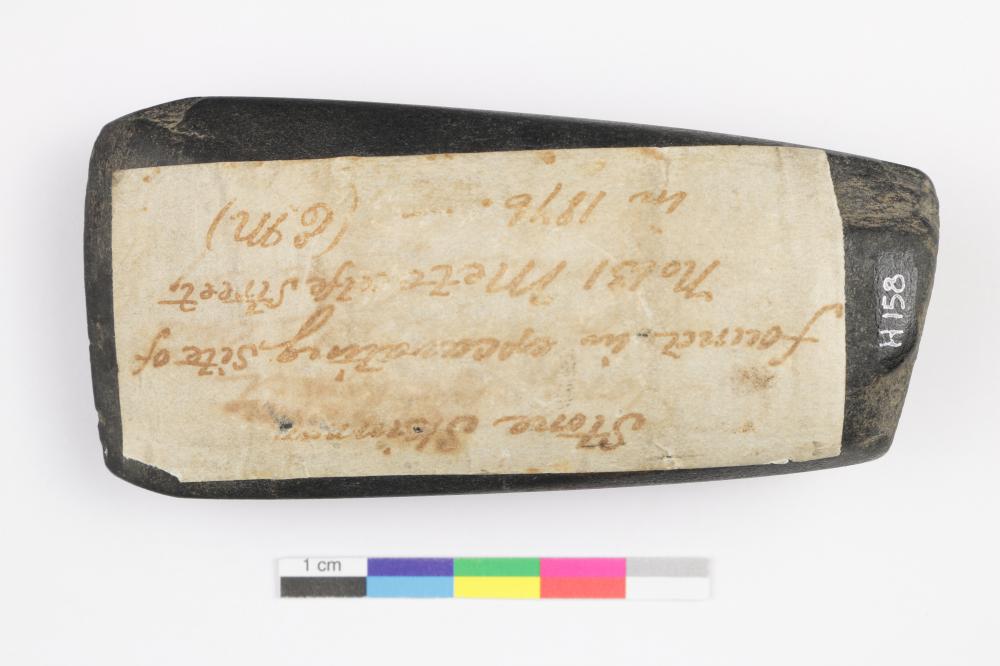 Stone Skinner
found in excavating Site of
No 131 Metcalfe Street,
in 1876. — (E.M)
H 158
1 cm